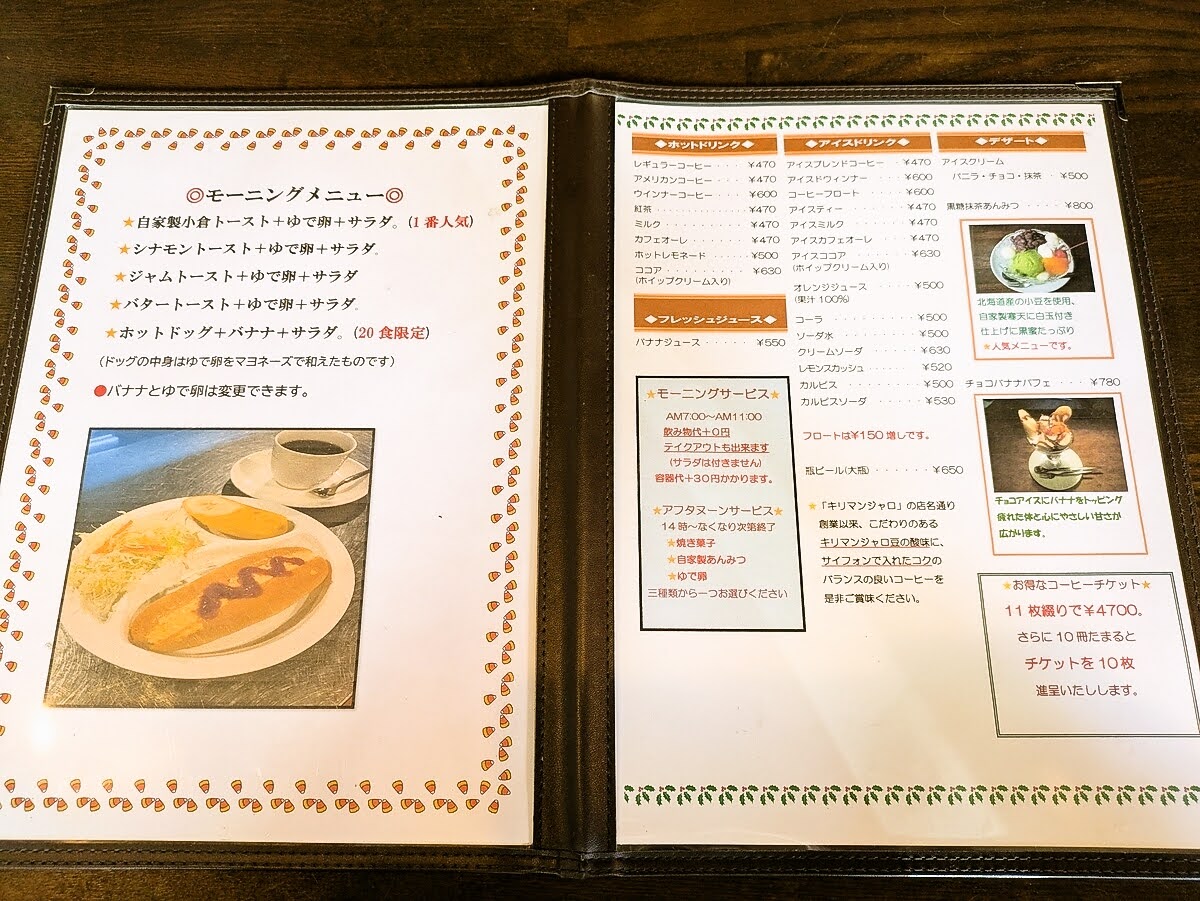 ◎モーニングメニュー◎
★自家製小倉トースト＋ゆで卵＋サラダ。(1番人気)
★シナモントースト＋ゆで卵＋サラダ。
★ジャムトースト＋ゆで卵＋サラダ
★バタートースト＋ゆで卵＋サラダ。
★ホットドッグ＋バナナ＋サラダ。(20食限定)
(ドッグの中身はゆで卵をマヨネーズで和えたものです)
●バナナとゆで卵は変更できます。
◆ホットドリンク◆
レギュラーコーヒー ・・・ ¥470
アメリカンコーヒー ・・・ ¥470
ウインナーコーヒー ・・・ ¥600
紅茶 ・・・・・・・・ ¥470
ミルク ・・・・・・・ ¥470
カフェオーレ ・・・・・ ¥470
ホットレモネード ・・・・ ¥500
ココア ・・・・・・・・ ¥630
(ホイップクリーム入り)
◆フレッシュジュース◆
バナナジュース ・・・・・ ¥550
★モーニングサービス★
AM7:00～AM11:00
飲み物代＋0円
テイクアウトも出来ます
(サラダは付きません)
容器代＋30円かかります。
★アフタヌーンサービス★
14時～なくなり次第終了
★焼き菓子
★自家製あんみつ
★ゆで卵
三種類から一つお選びください
◆アイスドリンク◆
アイスブレンドコーヒー ・・ ¥470
アイスドウィンナー ・・・・ ¥600
コーヒーフロート ・・・・ ¥600
アイスティー ・・・・・・ ¥470
アイスミルク ・・・・・・ ¥470
アイスカフェオーレ ・・・・ ¥470
アイスココア ・・・・・・ ¥630
(ホイップクリーム入り)
オレンジジュース ・・・・・ ¥500
(果汁100%)
コーラ ・・・・・・・・ ¥500
ソーダ水 ・・・・・・・ ¥500
クリームソーダ ・・・・・ ¥630
レモンスカッシュ ・・・・ ¥520
カルピス ・・・・・・・ ¥500
カルピスソーダ ・・・・・ ¥530
フロートは¥150増しです。
瓶ビール(大瓶) ・・・・・・ ¥650
★「キリマンジャロ」の店名通り
創業以来、こだわりのある
キリマンジャロ豆の酸味に、
サイフォンで入れたコクの
バランスの良いコーヒーを
是非ご賞味ください。
◆デザート◆
アイスクリーム
バニラ・チョコ・抹茶 ・ ¥500
黒糖抹茶あんみつ ・・・・ ¥800
北海道産の小豆を使用、
自家製寒天に白玉付き
仕上げに黒蜜たっぷり
★人気メニューです。
チョコバナナパフェ ・・・ ¥780
チョコアイスにバナナをトッピング
疲れた体と心にやさしい甘さが
広がります。
★お得なコーヒーチケット★
11枚綴りで¥4700。
さらに10冊たまると
チケットを10枚
進呈いたしします。